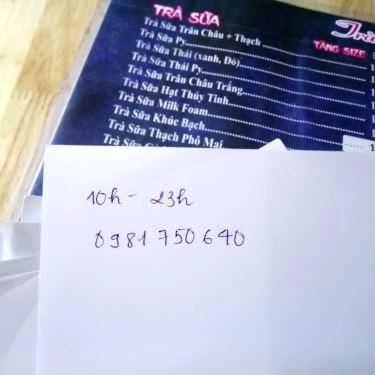 TRÀ SỮA
Trà Sữa Trân Châu + Thạch
TĂNG SIZE
Trà Sữa Py
Trà Sữa Thái (xanh, Đỏ)
Trà Sữa Thái Py
Trà Sữa Trân Châu Trắng
Trà Sữa Hạt Thủy Tinh
Trà Sữa Milk Foam
Trà Sữa Khúc Bạch
Trà Sữa Thạch Phô Mai
Trà Sữa
10h - 23h
0981 750 640